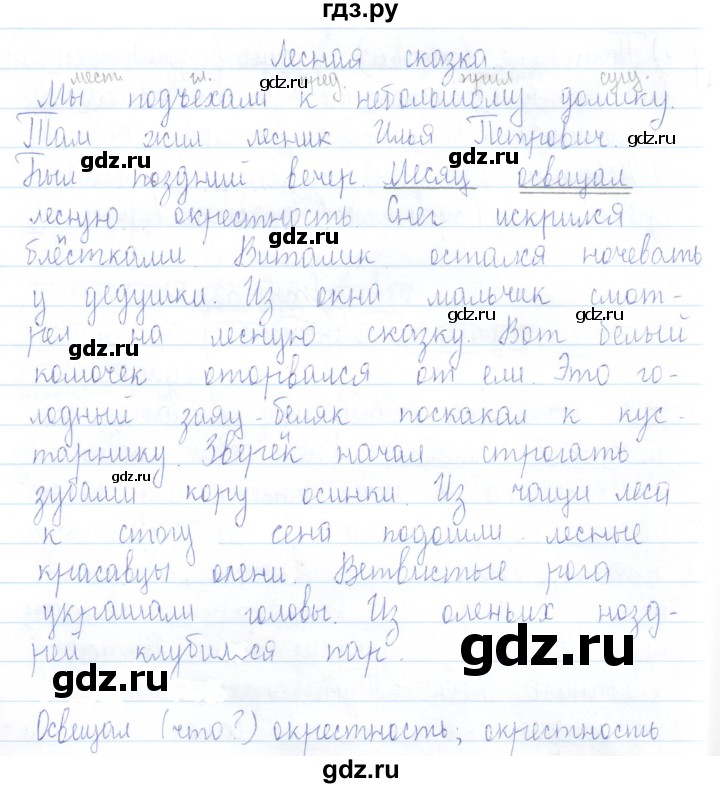 гдз.ру
Лесная сказка
мест. гл. пред. прил. сущ.
Мы подъехали к небольшому домику.
Там жил лесник Илья Петрович.
Был поздний вечер. Месяц освещал
лесную окрестность. Снег искрился
блёстками. Виталик остался ночевать
у дедушки. Из окна мальчик смот-
рел на лесную сказку. Вот белый
комочек оторвался от ели. Это го-
лодный заяц-беляк поскакал к кус-
тарнику. Зверёк начал строгать
зубами кору осинки. Из чащи леса
к стогу сена подошли лесные
красавцы олени. Ветвистые рога
украшали головы. Из оленьих нозд-
рей клубился пар.
Освещал (что?) окрестность; окрестность
gdz.ru
gdz.ru
gdz.ru
gdz.ru
gdz.ru
gdz.ru
gdz.ru
gdz.ru
gdz.ru
gdz.ru
gdz.ru
gdz.ru
gdz.ru